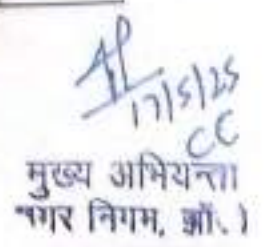 17/5/25
CC
मुख्य अभियन्ता
नगर निगम,